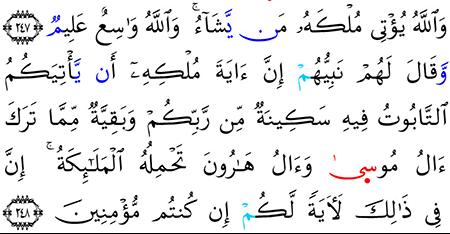 وَٱللَّهُ يُؤْتِى مُلْكَهُۥ مَن يَّشَآءُ ۚ وَٱللَّهُ وَٰسِعٌ عَلِيمٌ ﴿٢٤٧﴾
وَّقَالَ لَهُمْ نَبِيُّهُمْ إِنَّ ءَايَةَ مُلْكِهِۦٓ أَن يَّأْتِيَكُمُ
ٱلتَّابُوتُ فِيهِ سَكِينَةٌ مِّن رَّبِّكُمْ وَبَقِيَّةٌ مِّمَّا تَرَكَ
ءَالُ مُوسَىٰ وَءَالُ هَٰرُونَ تَحْمِلُهُ ٱلْمَلَٰٓئِكَةُ ۚ إِنَّ
فِى ذَٰلِكَ لَـَٔايَةً لَّكُمْ إِن كُنتُم مُّؤْمِنِينَ ﴿٢٤٨﴾